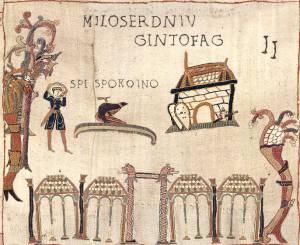 MILOSERDNIU
GINTOFAG
SPI SPOKOINO